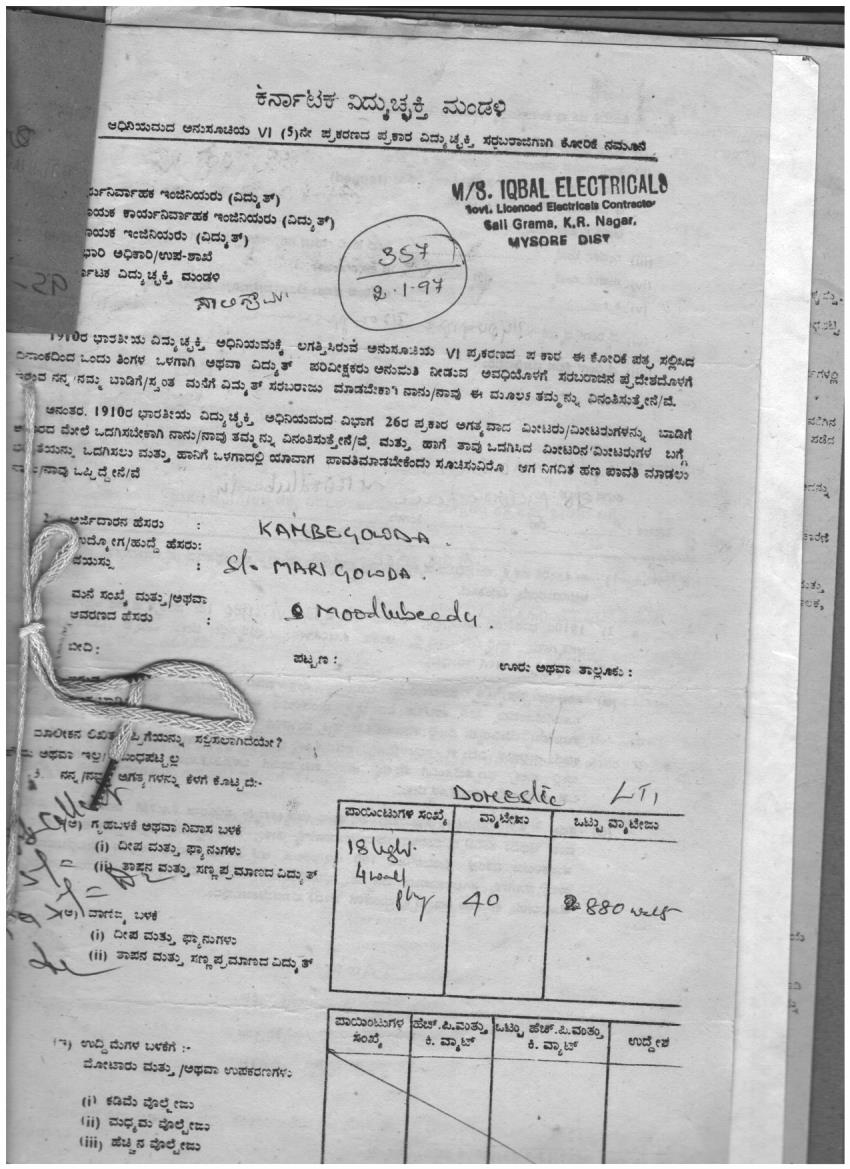 ಕರ್ನಾಟಕ ವಿದ್ಯುಚ್ಛಕ್ತಿ ಮಂಡಳಿ
ಅಧಿನಿಯಮದ ಅನುಸೂಚಿಯ VI (5)ನೇ ಪ್ರಕರಣದ ಪ್ರಕಾರ ವಿದ್ಯುಚ್ಛಕ್ತಿ ಸರಬರಾಜಿಗಾಗಿ ಕೋರಿಕೆ ನಮೂನೆ
M/S. IQBAL ELECTRICALS
Govt. Licenced Electricals Contractor
Sali Grama, K.R. Nagar,
MYSORE DIST
ರ್ಯನಿರ್ವಾಹಕ ಇಂಜಿನಿಯರು (ವಿದ್ಯುತ್)
ಾಯಕ ಕಾರ್ಯನಿರ್ವಾಹಕ ಇಂಜಿನಿಯರು (ವಿದ್ಯುತ್)
ಾಯಕ ಇಂಜಿನಿಯರು (ವಿದ್ಯುತ್)
ಭಾರಿ ಅಧಿಕಾರಿ/ಉಪ-ಶಾಖೆ
ರ್ನಾಟಕ ವಿದ್ಯುಚ್ಛಕ್ತಿ ಮಂಡಳಿ
357
2.1.97
1910ರ ಭಾರತೀಯ ವಿದ್ಯುಚ್ಛಕ್ತಿ ಅಧಿನಿಯಮಕ್ಕೆ ಲಗತ್ತಿಸಿರುವ ಅನುಸೂಚಿಯ VI ಪ್ರಕರಣದ ಪ್ರಕಾರ ಈ ಕೋರಿಕೆ ಪತ್ರ ಸಲ್ಲಿಸಿದ
ದಿನಾಂಕದಿಂದ ಒಂದು ತಿಂಗಳ ಒಳಗಾಗಿ ಅಥವಾ ವಿದ್ಯುತ್ ಪರಿವೀಕ್ಷಕರು ಅನುಮತಿ ನೀಡುವ ಅವಧಿಯೊಳಗೆ ಸರಬರಾಜಿನ ಪ್ರದೇಶದೊಳಗೆ
ಇರುವ ನನ್ನ/ನಮ್ಮ ಬಾಡಿಗೆ/ಸ್ವಂತ ಮನೆಗೆ ವಿದ್ಯುತ್ ಸರಬರಾಜು ಮಾಡಬೇಕಾಗಿ ನಾನು/ನಾವು ಈ ಮೂಲಕ ತಮ್ಮನ್ನು ವಿನಂತಿಸುತ್ತೇನೆ/ವೆ.
ಅನಂತರ. 1910ರ ಭಾರತೀಯ ವಿದ್ಯುಚ್ಛಕ್ತಿ ಅಧಿನಿಯಮದ ವಿಭಾಗ 26ರ ಪ್ರಕಾರ ಅಗತ್ಯವಾದ ಮೀಟರು/ಮೀಟರುಗಳನ್ನು ಬಾಡಿಗೆ
ಆಧಾರದ ಮೇಲೆ ಒದಗಿಸಬೇಕಾಗಿ ನಾನು/ನಾವು ತಮ್ಮನ್ನು ವಿನಂತಿಸುತ್ತೇನೆ/ವೆ, ಮತ್ತು ಹಾಗೆ ತಾವು ಒದಗಿಸಿದ ಮೀಟರಿನ/ಮೀಟರುಗಳ ಬಗ್ಗೆ
ಒದಗಿಸಲು ಮತ್ತು ಹಾನಿಗೆ ಒಳಗಾದಲ್ಲಿ ಯಾವಾಗ ಪಾವತಿಮಾಡಬೇಕೆಂದು ಸೂಚಿಸುವಿರೊ ಆಗ ನಿಗದಿತ ಹಣ ಪಾವತಿ ಮಾಡಲು
/ನಾವು ಒಪ್ಪಿದ್ದೇನೆ/ವೆ
ಅರ್ಜಿದಾರನ ಹೆಸರು : KAMBEGOWDA.
ಉದ್ಯೋಗ/ಹುದ್ದೆ ಹೆಸರು:
ವಯಸ್ಸು : S/o MARIGOWDA.
ಮನೆ ಸಂಖ್ಯೆ ಮತ್ತು/ಅಥವಾ
ಆವರಣದ ಹೆಸರು : Moodlubeedu.
ಬೀದಿ: ಪಟ್ಟಣ : ಊರು ಅಥವಾ ತಾಲ್ಲೂಕು :
ಮಾಲೀಕನ ಲಿಖಿತ ಸಲ್ಲಿಸಲಾಗಿದೆಯೇ?
ಅಥವಾ ಇಲ್ಲ/
ನನ್ನ/ನಮ್ಮ ಅಗತ್ಯಗಳನ್ನು ಕೆಳಗೆ ಕೊಟ್ಟಿದೆ:-
Domestic LT1
ಪಾಯಿಂಟುಗಳ ಸಂಖ್ಯೆ ವ್ಯಾಟೇಜು ಒಟ್ಟು ವ್ಯಾಟೇಜು
(ಅ) ಗೃಹಬಳಕೆ ಅಥವಾ ನಿವಾಸ ಬಳಕೆ
(i) ದೀಪ ಮತ್ತು ಫ್ಯಾನುಗಳು
(ii) ತಾಪನ ಮತ್ತು ಸಣ್ಣ ಪ್ರಮಾಣದ ವಿದ್ಯುತ್
18 light.
4 wall
plug 40 880 watts
(ಆ) ವಾಣಿಜ್ಯ ಬಳಕೆ
(i) ದೀಪ ಮತ್ತು ಫ್ಯಾನುಗಳು
(ii) ತಾಪನ ಮತ್ತು ಸಣ್ಣ ಪ್ರಮಾಣದ ವಿದ್ಯುತ್
ಪಾಯಿಂಟುಗಳ ಸಂಖ್ಯೆ ಹೆಚ್.ಪಿ.ಮತ್ತು ಕಿ. ವ್ಯಾಟ್ ಒಟ್ಟು ಹೆಚ್.ಪಿ.ಮತ್ತು ಕಿ. ವ್ಯಾಟ್ ಉದ್ದೇಶ
(ಇ) ಉದ್ದಿಮೆಗಳ ಬಳಕೆಗೆ :-
ಮೋಟಾರು ಮತ್ತು/ಅಥವಾ ಉಪಕರಣಗಳು
(i) ಕಡಿಮೆ ವೊಲ್ಟೇಜು
(ii) ಮಧ್ಯಮ ವೊಲ್ಟೇಜು
(iii) ಹೆಚ್ಚಿನ ವೊಲ್ಟೇಜು